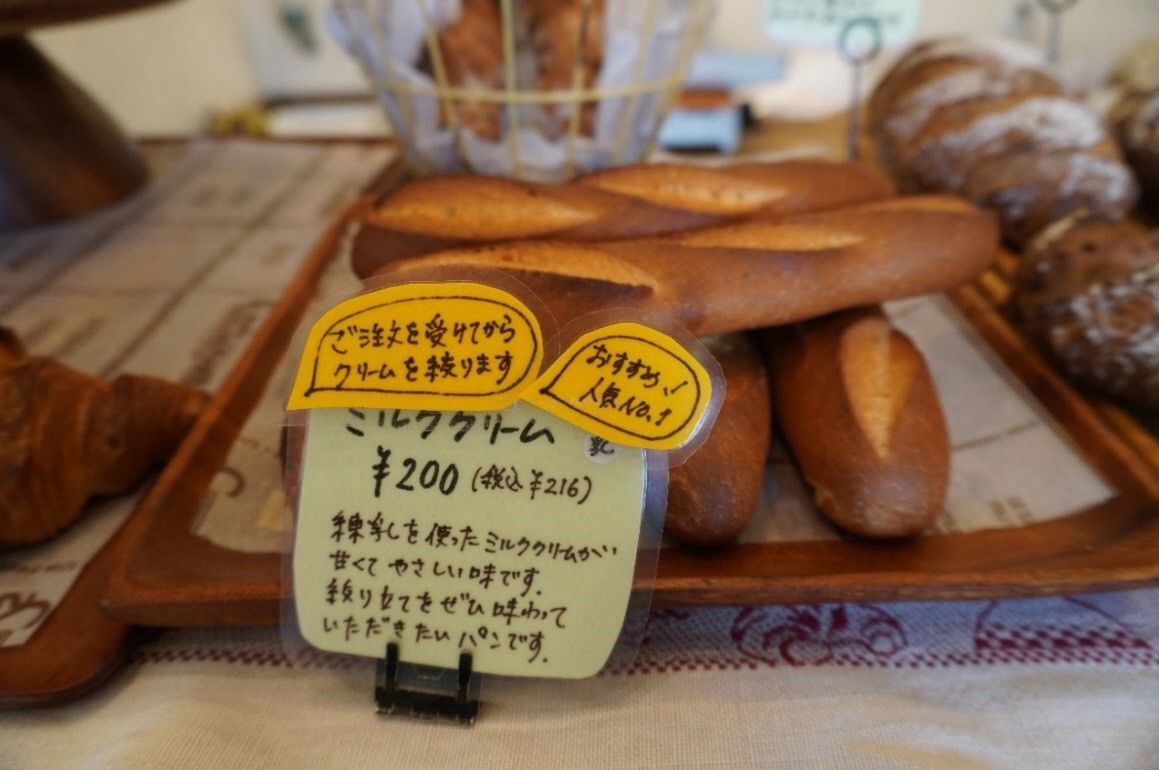 ご注文を受けてから
クリームを絞ります
おすすめ!
人気No.1
ミルククリーム
¥200 (税込¥216)
練乳を使ったミルククリームが
甘くてやさしい味です.
絞り立てをぜひ味わって
いただきたいパンです.